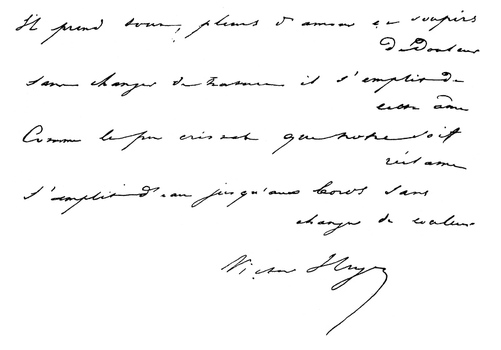 Il prend tout, pleurs d'amour et soupirs
de Douleur
sans changer de nature il s'emplit de
cette âme
Comme le pur cristal que notre soif
réclame
s'emplit d'eau jusqu'aux bords sans
changer de couleur
Victor Hugo